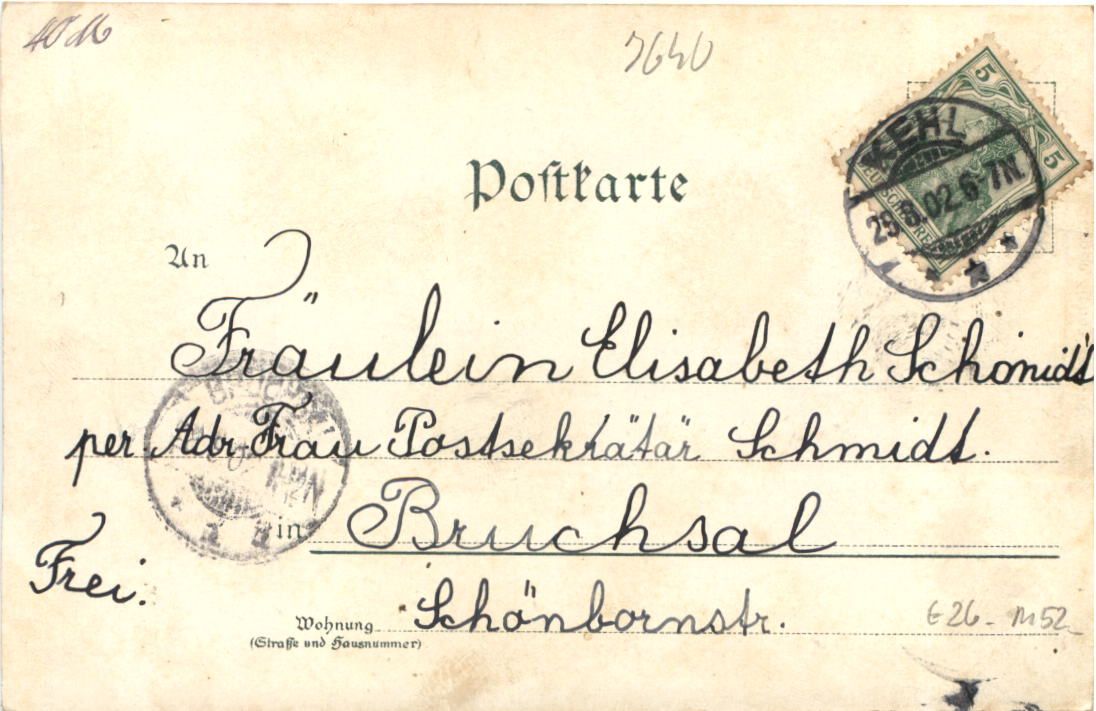 40 M
7640
5
5
KEHL
DEUTSCHES REICH
25.8.02.6-7N
Postkarte
An
Fräulein Elisabeth Schmidt
per Adr. Frau Postsekrätär Schmidt.
in Bruchsal
Frei.
Schönbornstr.
Wohnung
(Straße und Hausnummer)
E26 - M52